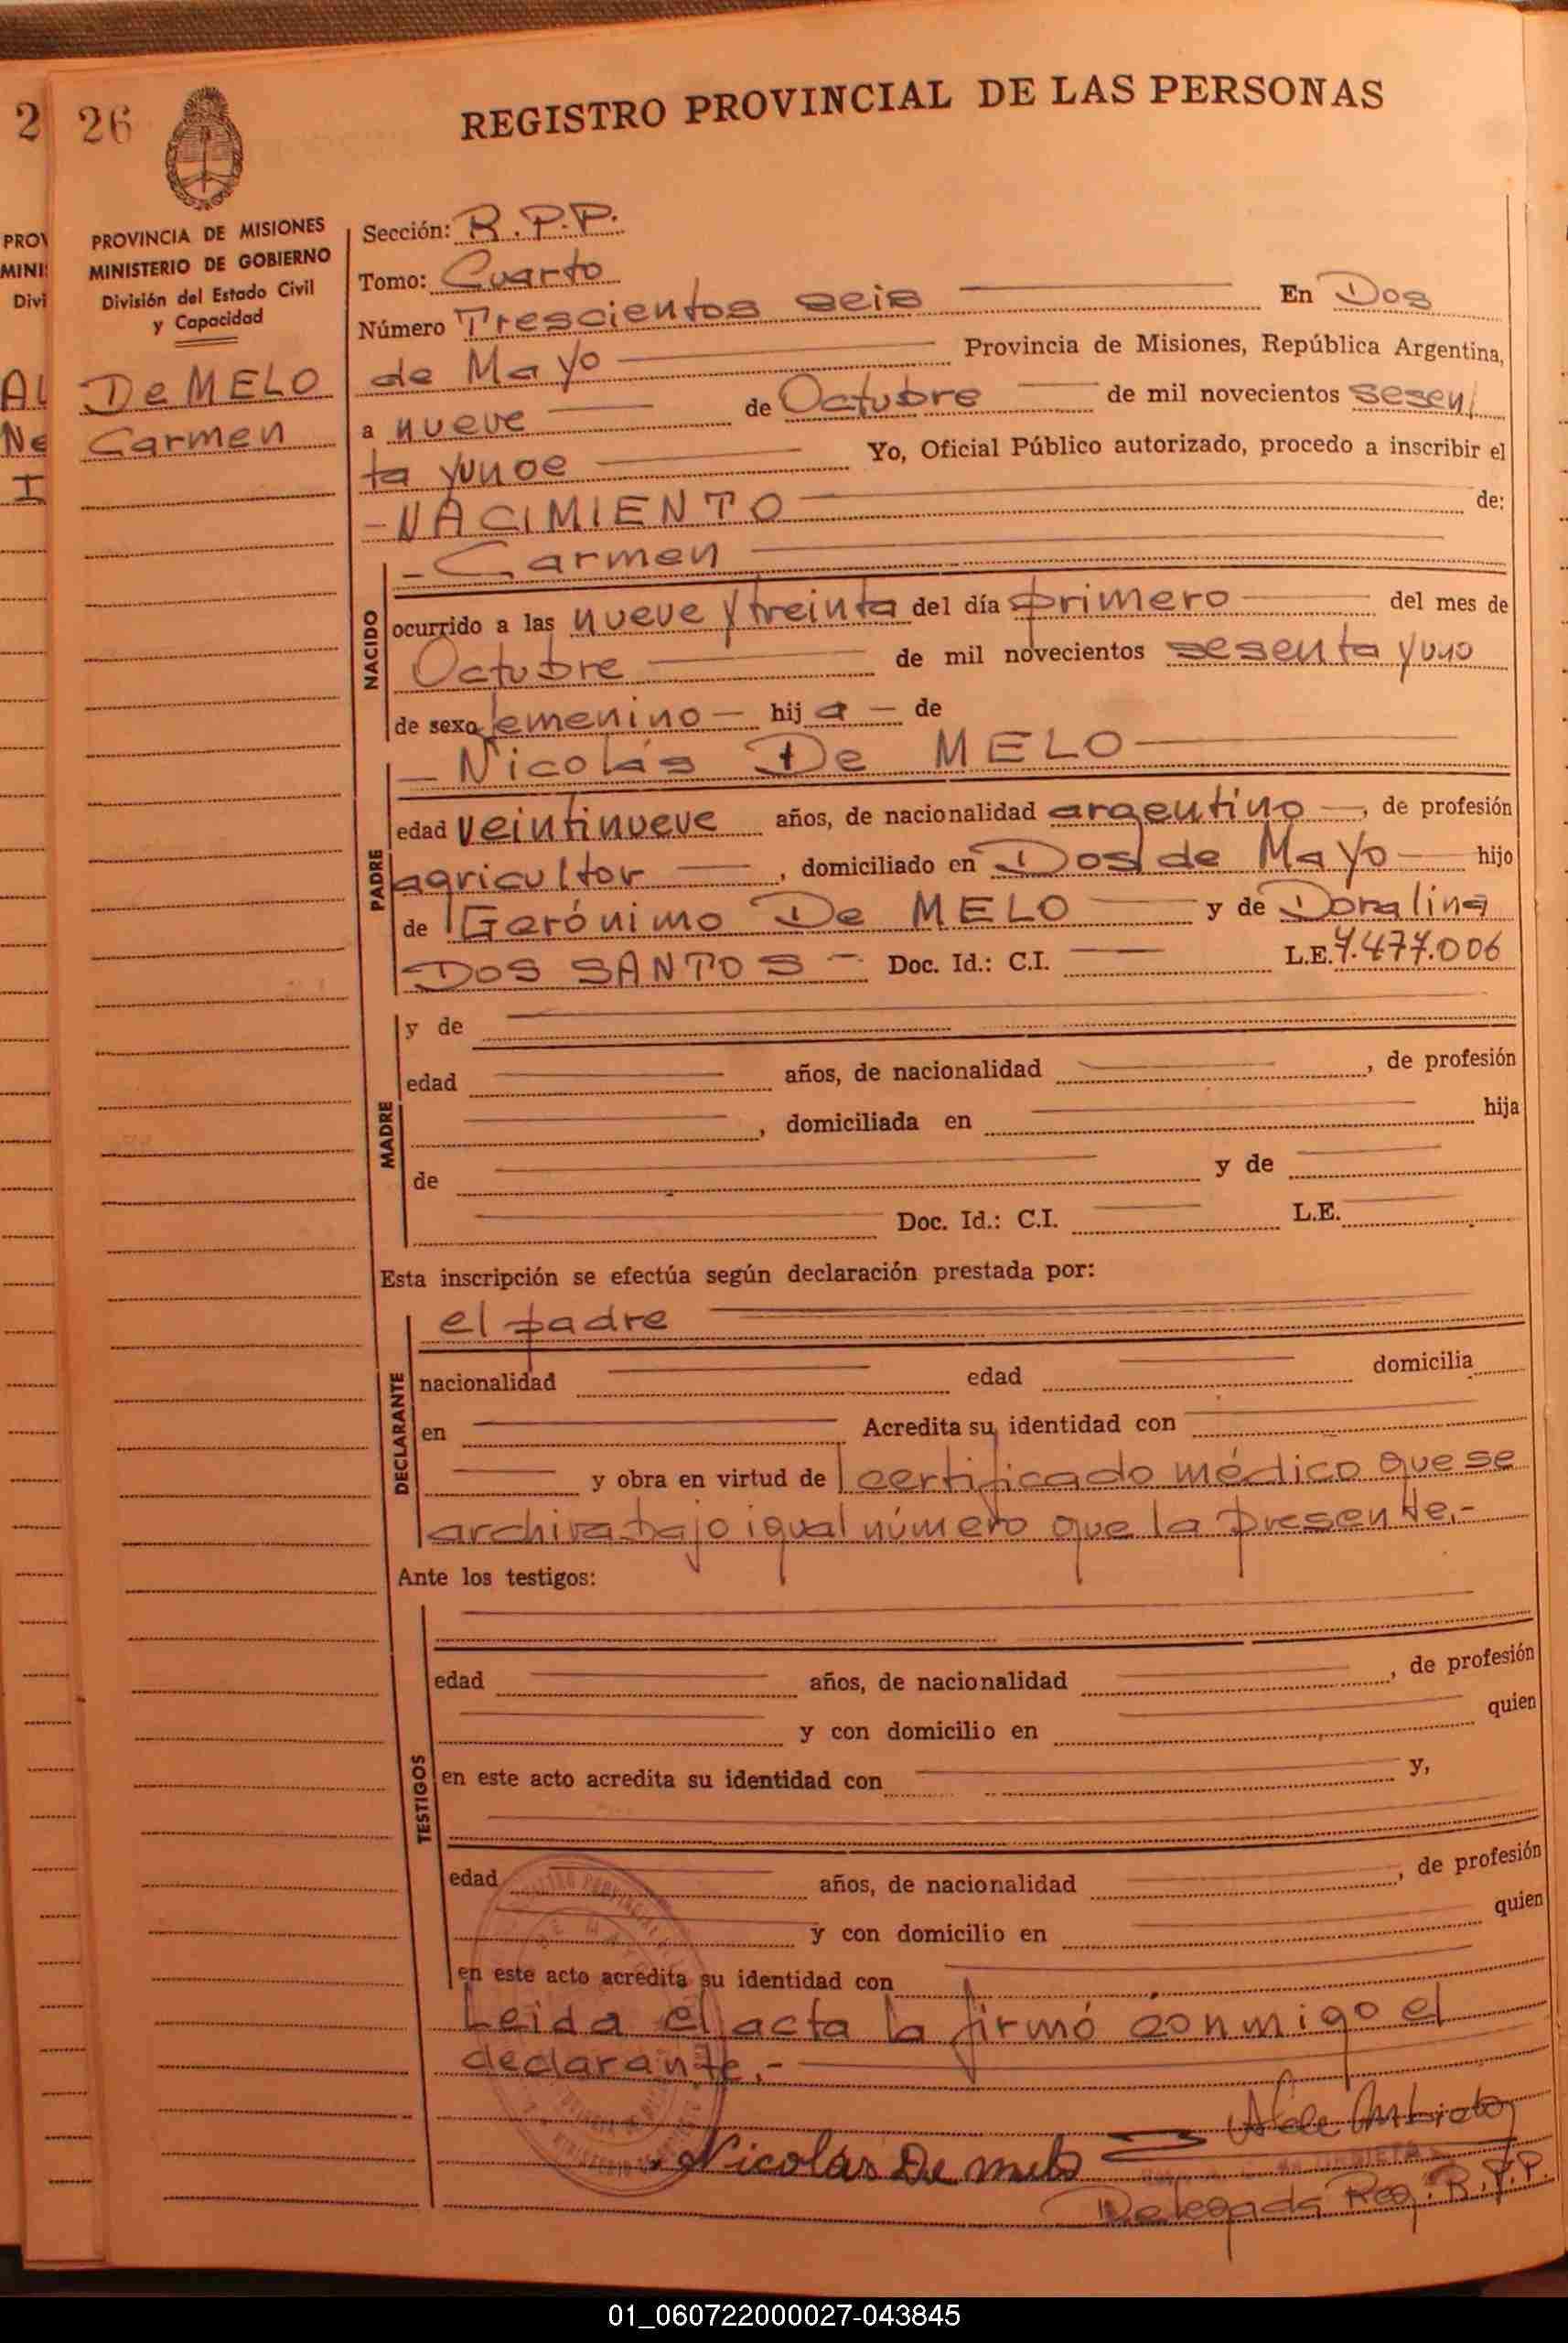 2 26
REGISTRO PROVINCIAL DE LAS PERSONAS
PROV
MINI
Divi
AL
Ne
I
PROVINCIA DE MISIONES
MINISTERIO DE GOBIERNO
División del Estado Civil
y Capacidad
De MELO
Carmen
Sección: R.P.P.
Tomo: Cuarto
Número Trescientos seis En Dos
de Mayo Provincia de Misiones, República Argentina,
a nueve de Octubre de mil novecientos sesen
ta y unoe Yo, Oficial Público autorizado, procedo a inscribir el
- NACIMIENTO de:
- Carmen
NACIDO
ocurrido a las nueve y treinta del día primero del mes de
Octubre de mil novecientos sesenta y uno
de sexo femenino - hij a - de
- Nicolás De MELO
PADRE
edad veintinueve años, de nacionalidad argentino -, de profesión
agricultor, domiciliado en Dos de Mayo hijo
de Gerónimo De MELO y de Doralina
DOS SANTOS - Doc. Id.: C.I. L.E. 7.477.006
MADRE
y de
edad años, de nacionalidad , de profesión
, domiciliada en hija
de y de
Doc. Id.: C.I. L.E.
Esta inscripción se efectúa según declaración prestada por:
DECLARANTE
el padre
nacionalidad edad domicilia
en Acredita su identidad con
y obra en virtud de certificado médico que se
archiva bajo igual número que la presente.-
Ante los testigos:
TESTIGOS
edad años, de nacionalidad , de profesión
y con domicilio en quien
en este acto acredita su identidad con y,
edad años, de nacionalidad , de profesión
y con domicilio en quien
en este acto acredita su identidad con
Leida el acta la firmó conmigo el
declarante.-
Nicolás De melo
Delegada Reg. R.P.P.
01_060722000027-043845